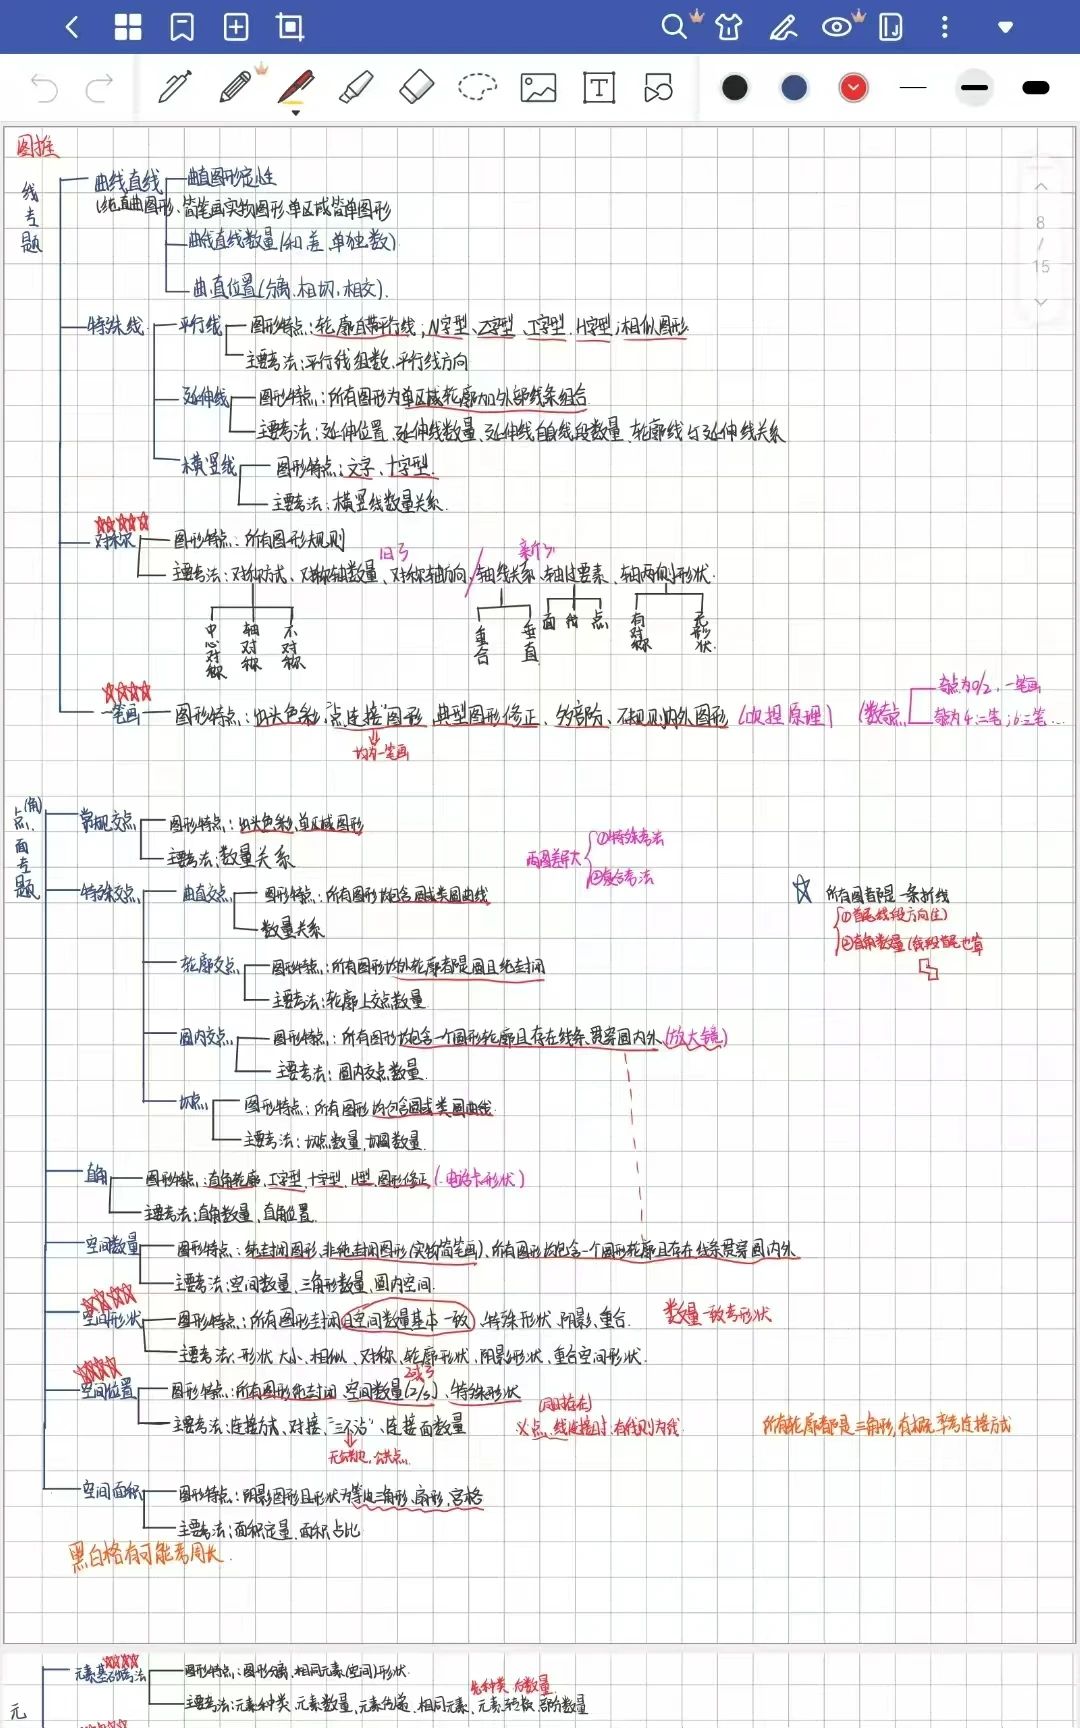 8
/
15
图推
线专题
曲线直线
曲直图形定性
(纯直曲图形、简笔画实物图形、单区域简单图形
曲线直线数量(和、差、单独数)
曲直位置(分离、相切、相交).
特殊线
平行线
图形特点:轮廓自带平行线;N字型、Z字型、工字型、H字型;相似图形
主要考法:平行线组数、平行线方向
延伸线
图形特点:所有图形为单区域轮廓加外部线条组合
主要考法:延伸位置、延伸线数量、延伸线自身线段数量、轮廓线与延伸线关系
横竖线
图形特点:文字、十字型.
主要考法:横竖线数量关系.
对称
图形特点:所有图形规则
旧考
新考
主要考法:对称方式、对称轴数量、对称轴方向、轴线关系、轴过要素、轴两侧形状.
中心对称
轴对称
不对称
重合
垂直
面
线
点
有对称
无形状
一笔画
图形特点:出头色彩、"点连接"图形、典型图形修正、多部分、不规则内外图形(吹捏原理)
均为一笔画
(数奇点
奇点为0/2,一笔画
奇为4:二笔;6:三笔...
点(角)、面专题
常规交点
图形特点:出头色彩、单区域图形
主要考法:数量关系
两图差异大
①特殊考法
②复合考法
特殊交点
曲直交点
图形特点:所有图形均包含圆或类圆曲线
数量关系
所有图都是一条折线
①首尾线段方向(位)
②直角数量(线段首尾也算
轮廓交点
图形特点:所有图形均外轮廓都是圆且纯封闭
主要考法:轮廓上交点数量
圆内交点
图形特点:所有图形均包含一个圆形轮廓且存在线条贯穿圆内外(放大镜)
主要考法:圆内交点数量.
切点
图形特点:所有图形均包含圆或类圆曲线
主要考法:切点数量、切圆数量.
直角
图形特点:直角轮廓、工字型、十字型、L型、图形修正(电话卡形状)
主要考法:直角数量、直角位置.
空间数量
图形特点:纯封闭图形、非纯封闭图形(实物简笔画)、所有图形均包含一个圆形轮廓且存在线条贯穿圆内外
主要考法:空间数量、三角形数量、圆内空间.
空间形状
图形特点:所有图形封闭且空间数量基本一致、特殊形状、阴影、重合.
数量一致考形状
主要考法:形状大小、相似、对称、轮廓形状、阴影形状、重合空间形状.
空间位置
2或3
图形特点:所有图形纯封闭、空间数量(2/3)、特殊形状
主要考法:连接方式、对接、"三不沾"、连接面数量
无公共边、公共点.
(同时存在)
※点、线连接时,有线则为线.
所有轮廓都是三角形,有概率考连接方式
空间面积
图形特点:阴影图形且形状为等边三角形、扇形、宫格
主要考法:面积定量、面积占比
黑白格有可能考周长.
元
元素基础考法
图形特点:图形分离、相同元素(空间)形状.
先种类、后数量
主要考法:元素种类、元素数量、元素位置、相同元素、元素转换、部分数量